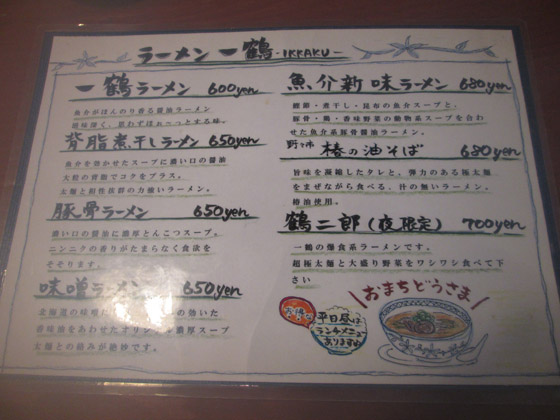 ラーメン 一鶴 -IKKAKU-
一鶴ラーメン 600yen
魚介がほんのり香る醤油ラーメン
背脂煮干しラーメン 650yen
魚介を効かせたスープに濃い口の醤油
大粒の背脂でコクをプラス。
太麺と相性抜群の力強いラーメン。
豚骨ラーメン 650yen
濃い口の醤油に濃厚とんこつスープ。
ニンニクの香りがたまらなく食欲を
そそります。
味噌ラーメン 650yen
北海道の味噌に の効いた
香味油をあわせたオリジ 濃厚スープ
太麺との絡みが絶妙です。
魚介新味ラーメン 680yen
鰹節・煮干し・昆布の魚介スープと、
豚骨・鶏・香味野菜の動物系スープを合わ
せた魚介系豚骨醤油ラーメン。
野々市 椿の油そば 680yen
旨味を凝縮したタレと、弾力のある極太麺
をまぜながら食べる、汁の無いラーメン。
椿油使用。
鶴二郎(夜限定) 700yen
一鶴の爆食系ラーメンです。
超極太麺と大盛り野菜をワシワシ食べて下
さい
おまちどうさま
お得な
平日昼は
ランチメニュー
ありますよ